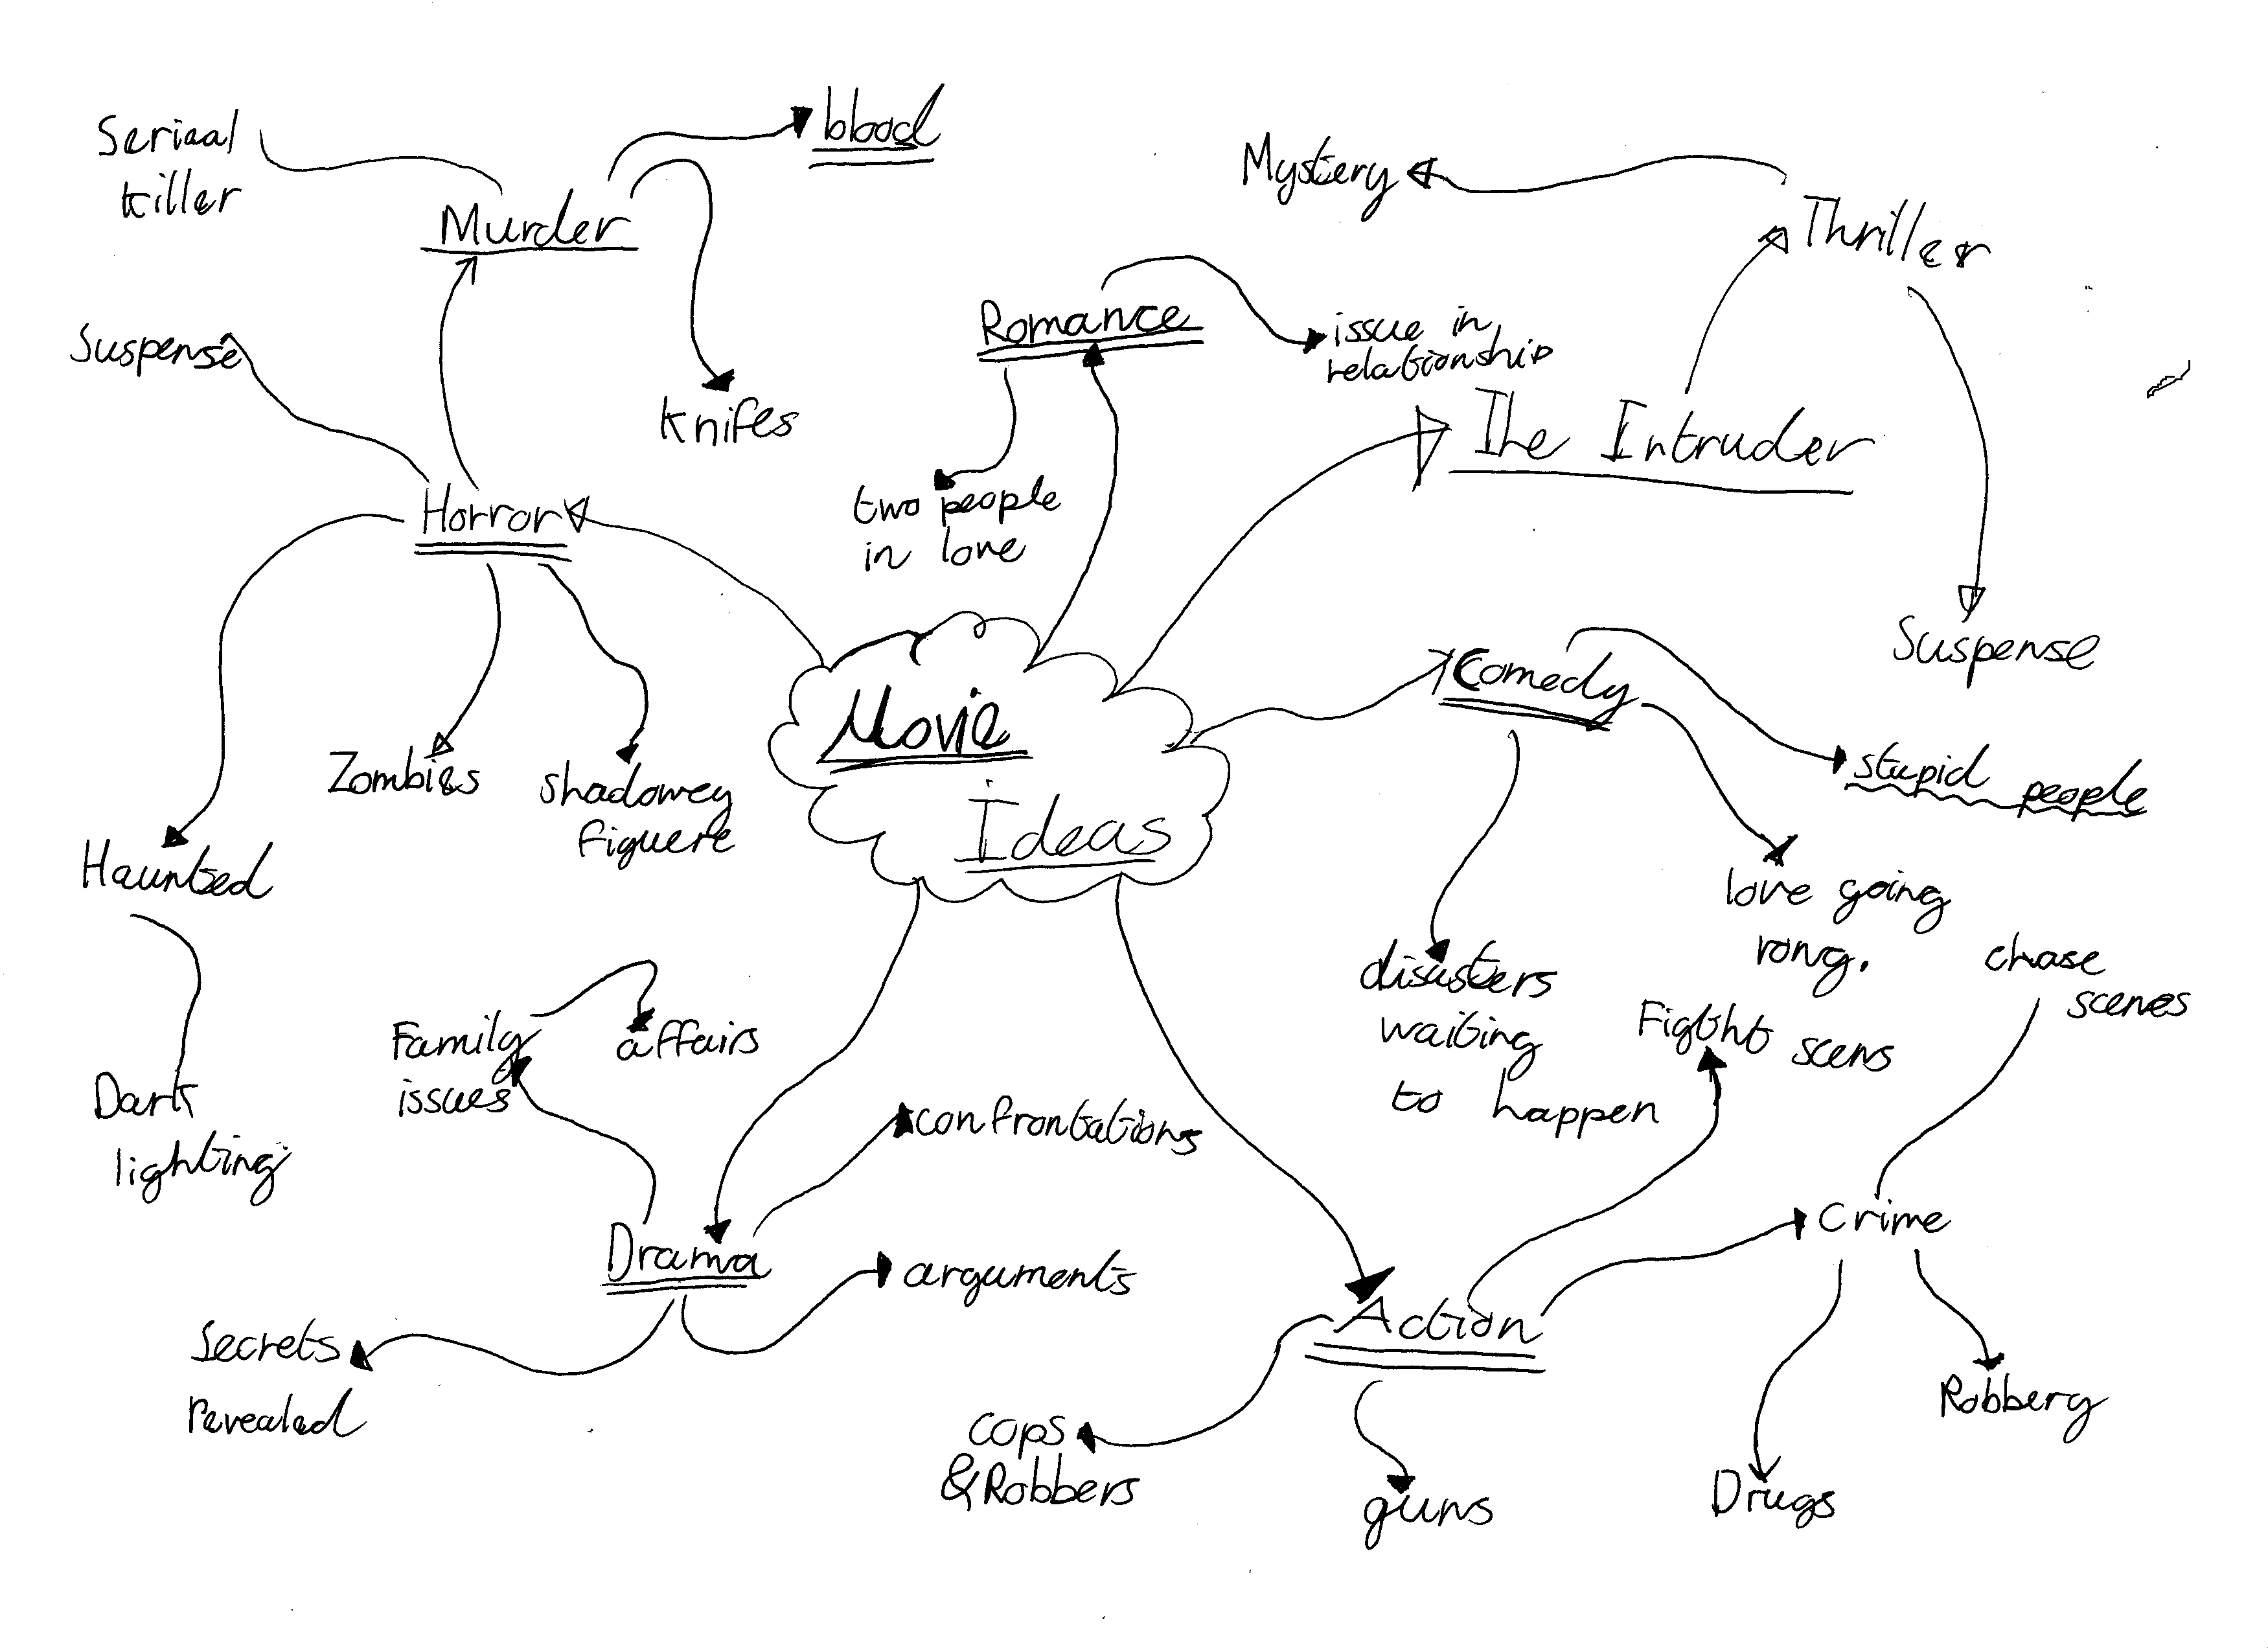 Seriaal
killer
Murder
blood
knifes
Suspense
Horror
Zombies
shadowey
figuere
Haunted
Dark
lighting
Romance
issue in
relationship
two people
in love
Mystery
Thriller
The Intruder
Suspense
Movie
Ideas
Comedy
stupid people
love going
rong.
disasters
waiting
to happen
Family
issues
affairs
confrontations
Drama
arguments
Secrets
revealed
Action
Figtht scens
chase
scenes
Crime
Robbery
Drugs
guns
cops
& Robbers